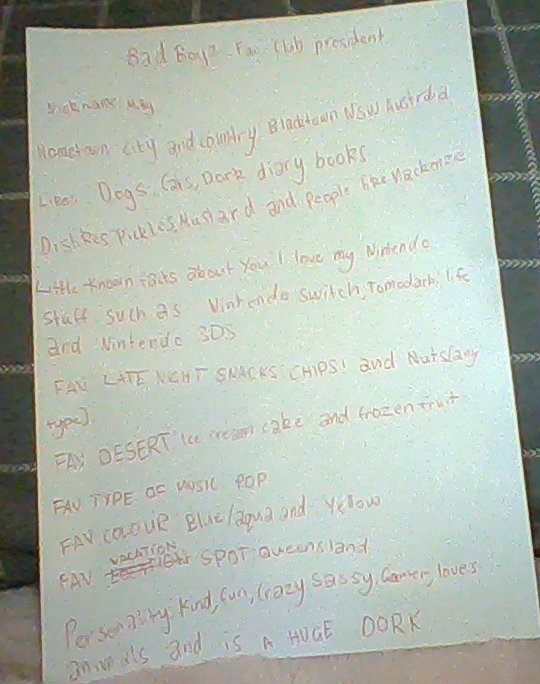 Bad Boyz Fan Club president
Nickname May
Hometown city and country Blacktown NSW Australia
Likes Dogs, Cats, Dork diary books
Dislikes Pickles, Mustard and people like Mackenzie
Little known facts about You I love my Nintendo
Stuff such as Nintendo switch, Tomodachi life
and Nintendo 3DS
FAV LATE NIGHT SNACKS CHIPS! and Nuts[any
type]
FAV DESERT Ice cream cake and frozen fruit
FAV TYPE OF MUSIC POP
FAV COLOUR Blue/aqua and Yellow
FAV VACATION SPOT Queensland
Personality: Kind, fun, Crazy Sassy, Gamer, loves
animals and is A HUGE DORK